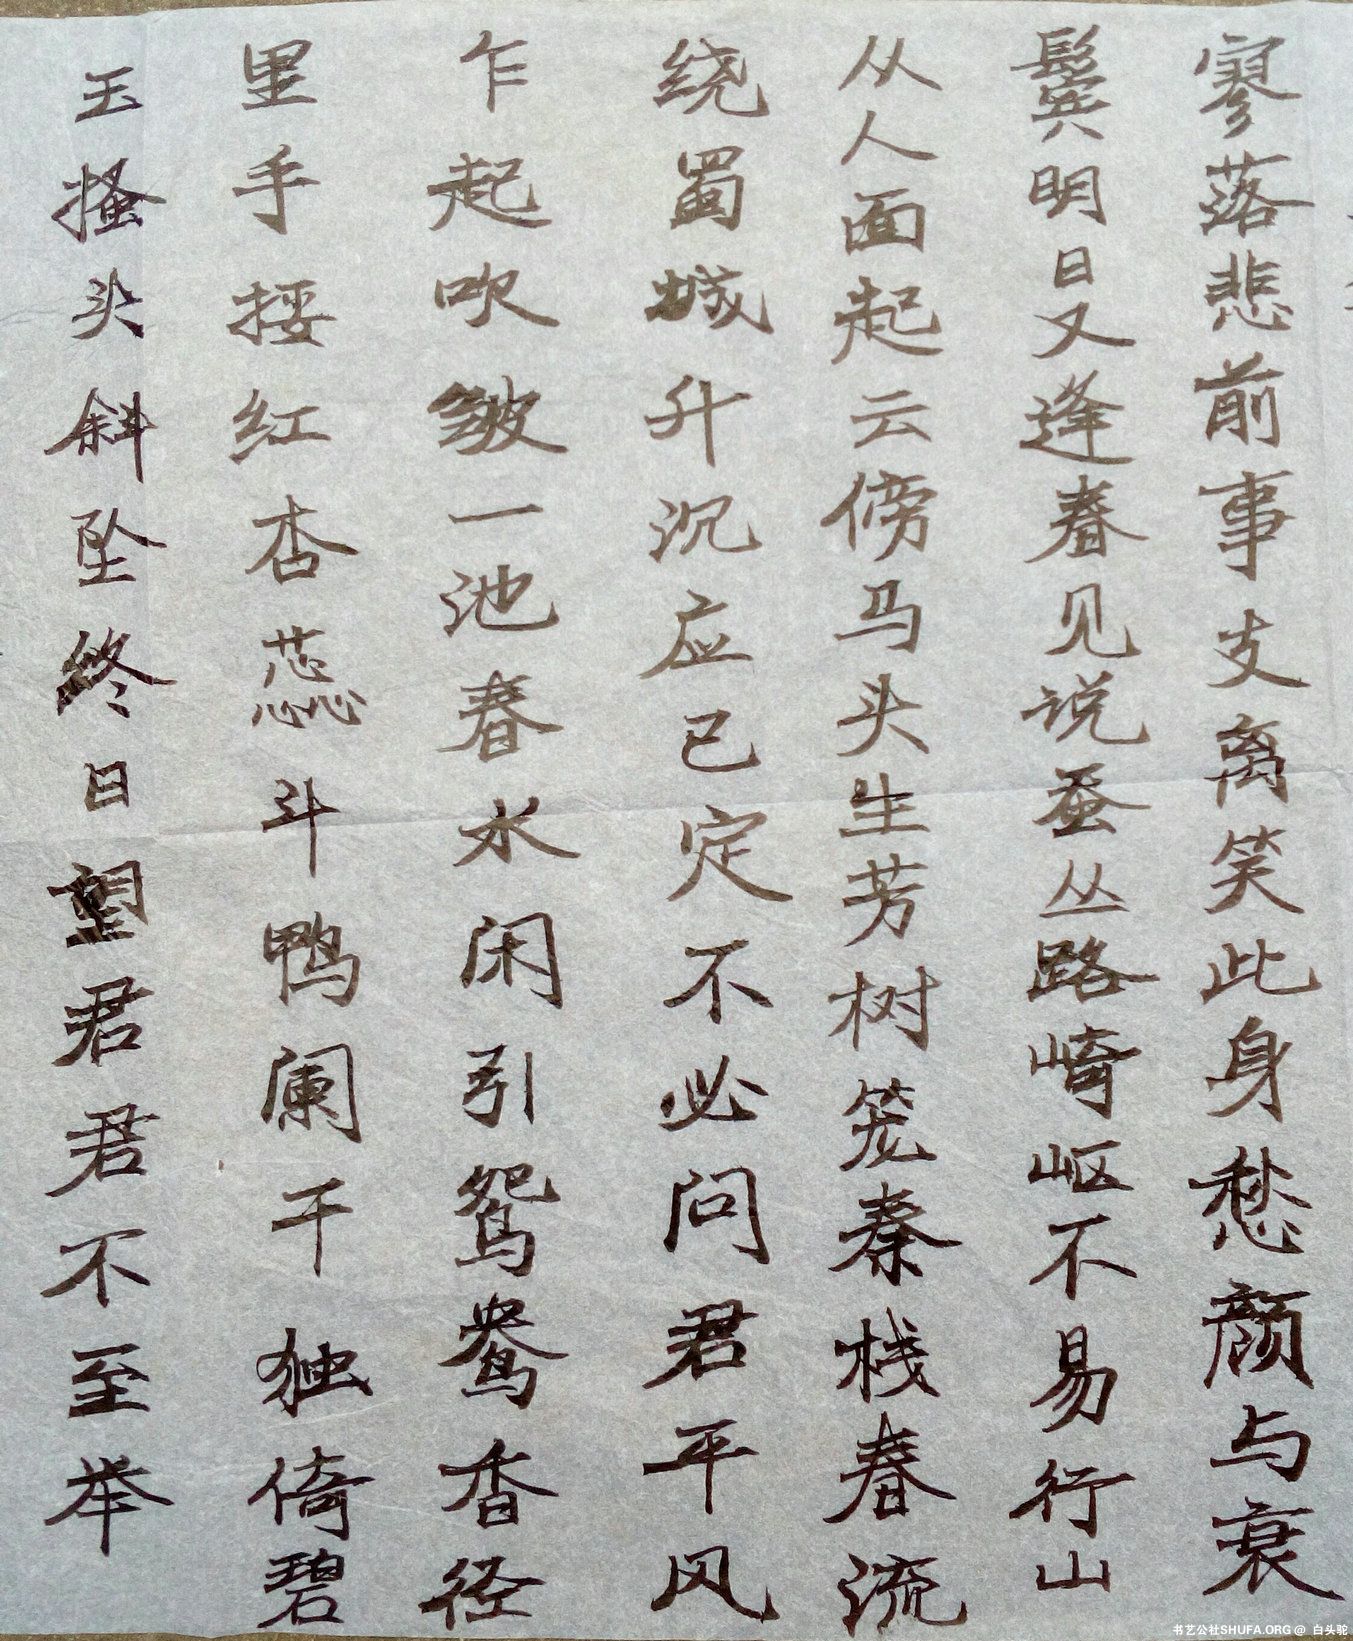 寥落悲前事支离笑此身愁颜与衰
鬓明日又逢春见说蚕丛路崎岖不易行山
从人面起云傍马头生芳树笼秦栈春流
绕蜀城升沉应已定不必问君平风
乍起吹皱一池春水闲引鸳鸯香径
里手挼红杏蕊斗鸭阑干独倚碧
玉搔头斜坠终日望君君不至举
书艺公社SHUFA.ORG @ 白头鸵